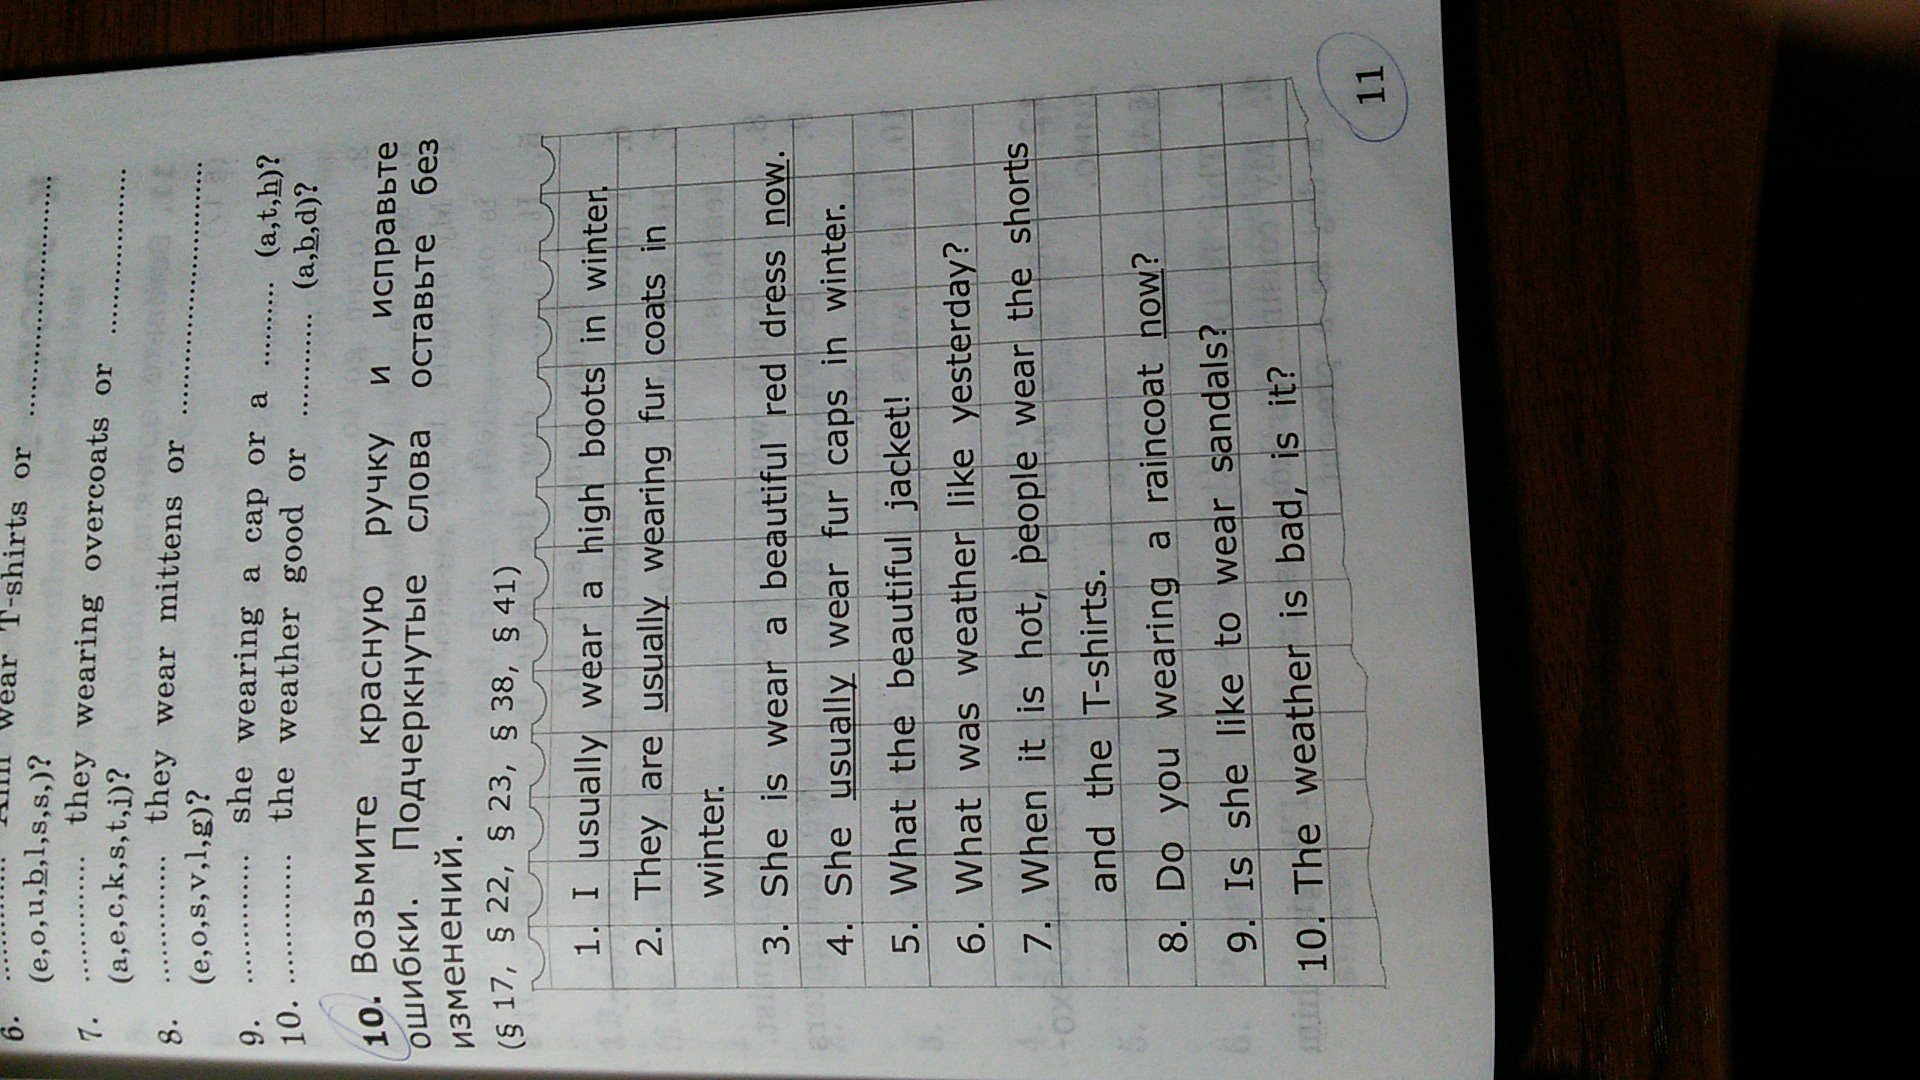 6. ............ Ann wear T-shirts or ..............................
(e,o,u,b,l,s,s,)?
7. ............ they wearing overcoats or ....................
(a,e,c,k,s,t,i)?
8. ............ they wear mittens or ..............................
(e,o,s,v,l,g)?
9. ............ she wearing a cap or a ......... (a,t,h)?
10. ............ the weather good or ............ (a,b,d)?
10. Возьмите красную ручку и исправьте
ошибки. Подчеркнутые слова оставьте без
изменений.
(§ 17, § 22, § 23, § 38, § 41)
1. I usually wear a high boots in winter.
2. They are usually wearing fur coats in
winter.
3. She is wear a beautiful red dress now.
4. She usually wear fur caps in winter.
5. What the beautiful jacket!
6. What was weather like yesterday?
7. When it is hot, people wear the shorts
and the T-shirts.
8. Do you wearing a raincoat now?
9. Is she like to wear sandals?
10. The weather is bad, is it?
11